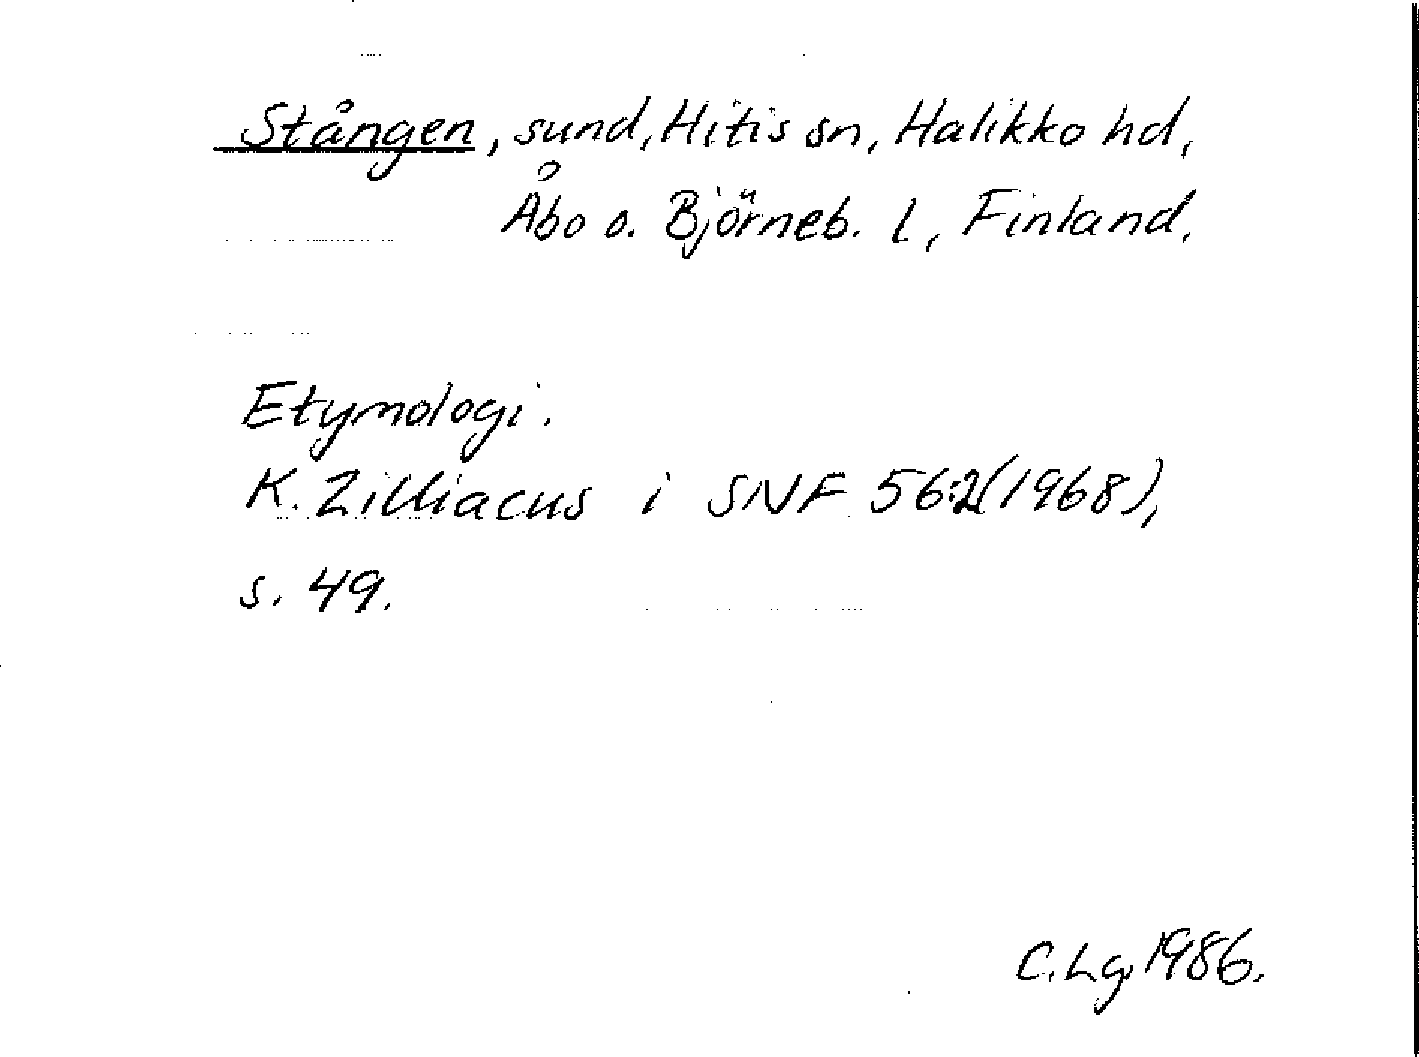 Stången, sund, Hitis sn, Halikko hd,
Åbo o. Björneb. l, Finland.
Etymologi.
K. Zilliacus i SNF 56:2(1968),
s. 49.
C. Lg. 1986.